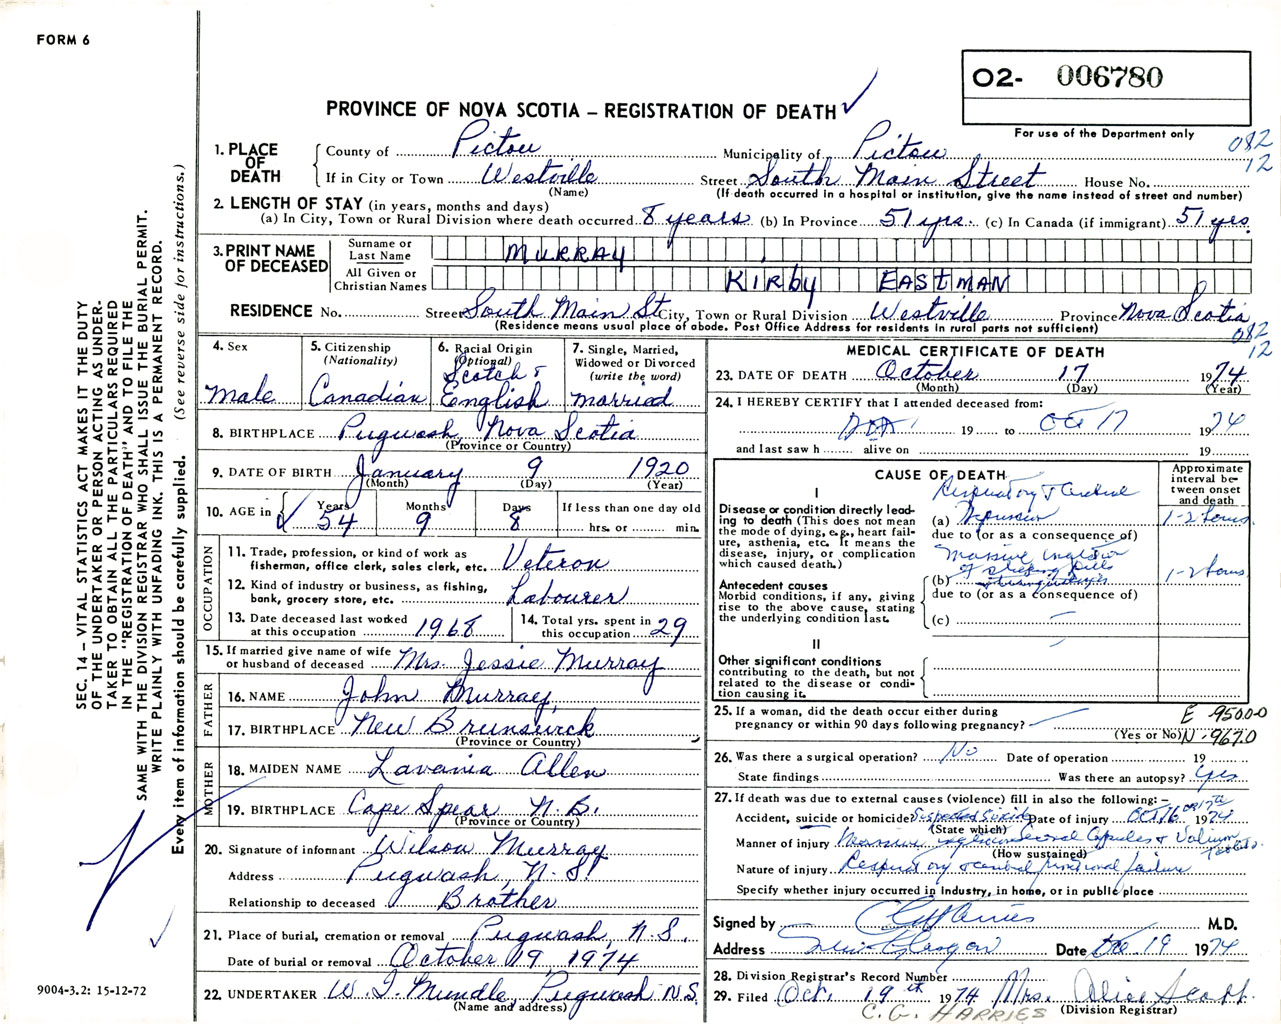 FORM 6
O2- 006780
For use of the Department only
082
12
PROVINCE OF NOVA SCOTIA – REGISTRATION OF DEATH
1. PLACE OF DEATH
County of Pictou Municipality of Pictou
If in City or Town Westville Street South Main Street House No.
(Name) (If death occurred in a hospital or institution, give the name instead of street and number)
2. LENGTH OF STAY (in years, months and days)
(a) In City, Town or Rural Division where death occurred 8 years (b) In Province 51 yrs. (c) In Canada (if immigrant) 51 yrs.
3. PRINT NAME OF DECEASED
Surname or Last Name MURRAY
All Given or Christian Names KIRby EASTMAN
RESIDENCE No. Street South Main St City, Town or Rural Division Westville Province Nova Scotia
(Residence means usual place of abode. Post Office Address for residents in rural parts not sufficient)
082
12
4. Sex Male
5. Citizenship (Nationality) Canadian
6. Racial Origin (Optional) Scotch & English
7. Single, Married, Widowed or Divorced (write the word) married
8. BIRTHPLACE Pugwash, Nova Scotia
(Province or Country)
9. DATE OF BIRTH January 9 1920
(Month) (Day) (Year)
10. AGE in Years 54 Months 9 Days 8 If less than one day old hrs. or min.
OCCUPATION
11. Trade, profession, or kind of work as fisherman, office clerk, sales clerk, etc. Veteron
12. Kind of industry or business, as fishing, bank, grocery store, etc. Labourer
13. Date deceased last worked at this occupation 1968
14. Total yrs. spent in this occupation 29
15. If married give name of wife or husband of deceased Mrs. Jessie Murray
FATHER
16. NAME John Murray
17. BIRTHPLACE New Brunswick
(Province or Country)
MOTHER
18. MAIDEN NAME Lavania Allen
19. BIRTHPLACE Cape Spear N.B.
(Province or Country)
20. Signature of informant Wilson Murray
Address Pugwash, N.S.
Relationship to deceased Brother
21. Place of burial, cremation or removal Pugwash, N.S.
Date of burial or removal October 19, 1974
22. UNDERTAKER Pugwash N.S.
(Name and address)
MEDICAL CERTIFICATE OF DEATH
23. DATE OF DEATH October 17 1974
(Month) (Day) (Year)
24. I HEREBY CERTIFY that I attended deceased from:
19 to Oct 17 1974
and last saw h alive on 19
CAUSE OF DEATH
Approximate interval between onset and death
I
Disease or condition directly leading to death (This does not mean the mode of dying, e.g., heart failure, asthenia, etc. It means the disease, injury, or complication which caused death.)
Respiratory &
(a) 1-2 hours
due to (or as a consequence of)
Massive
of sleeping pills
Antecedent causes
Morbid conditions, if any, giving rise to the above cause, stating the underlying condition last.
(b) 1-2 hours
due to (or as a consequence of)
(c)
II
Other significant conditions contributing to the death, but not related to the disease or condition causing it.
25. If a woman, did the death occur either during pregnancy or within 90 days following pregnancy?
(Yes or No)
E 9500-0
N-967.0
26. Was there a surgical operation? No Date of operation 19
State findings Was there an autopsy? Yes
27. If death was due to external causes (violence) fill in also the following:-
Accident, suicide or homicide? Suspected Suicide Date of injury Oct 16 or 17th 1974
(State which)
Manner of injury Several Capsules & Valium Tablets.
(How sustained)
Nature of injury Respiratory & functional failure
Specify whether injury occurred in industry, in home, or in public place
Signed by M.D.
Address New Glasgow Date Oct 19 1974
28. Division Registrar's Record Number
29. Filed Oct. 19th 1974 Mrs. Alice Scott
(Division Registrar)
C.G. HARRIES
SEC. 14 – VITAL STATISTICS ACT MAKES IT THE DUTY
OF THE UNDERTAKER OR PERSON ACTING AS UNDER-
TAKER TO OBTAIN ALL THE PARTICULARS REQUIRED
IN THE "REGISTRATION OF DEATH" AND TO FILE THE
SAME WITH THE DIVISION REGISTRAR WHO SHALL ISSUE THE BURIAL PERMIT.
WRITE PLAINLY WITH UNFADING INK. THIS IS A PERMANENT RECORD.
Every item of information should be carefully supplied. (See reverse side for instructions.)
9004-3.2: 15-12-72